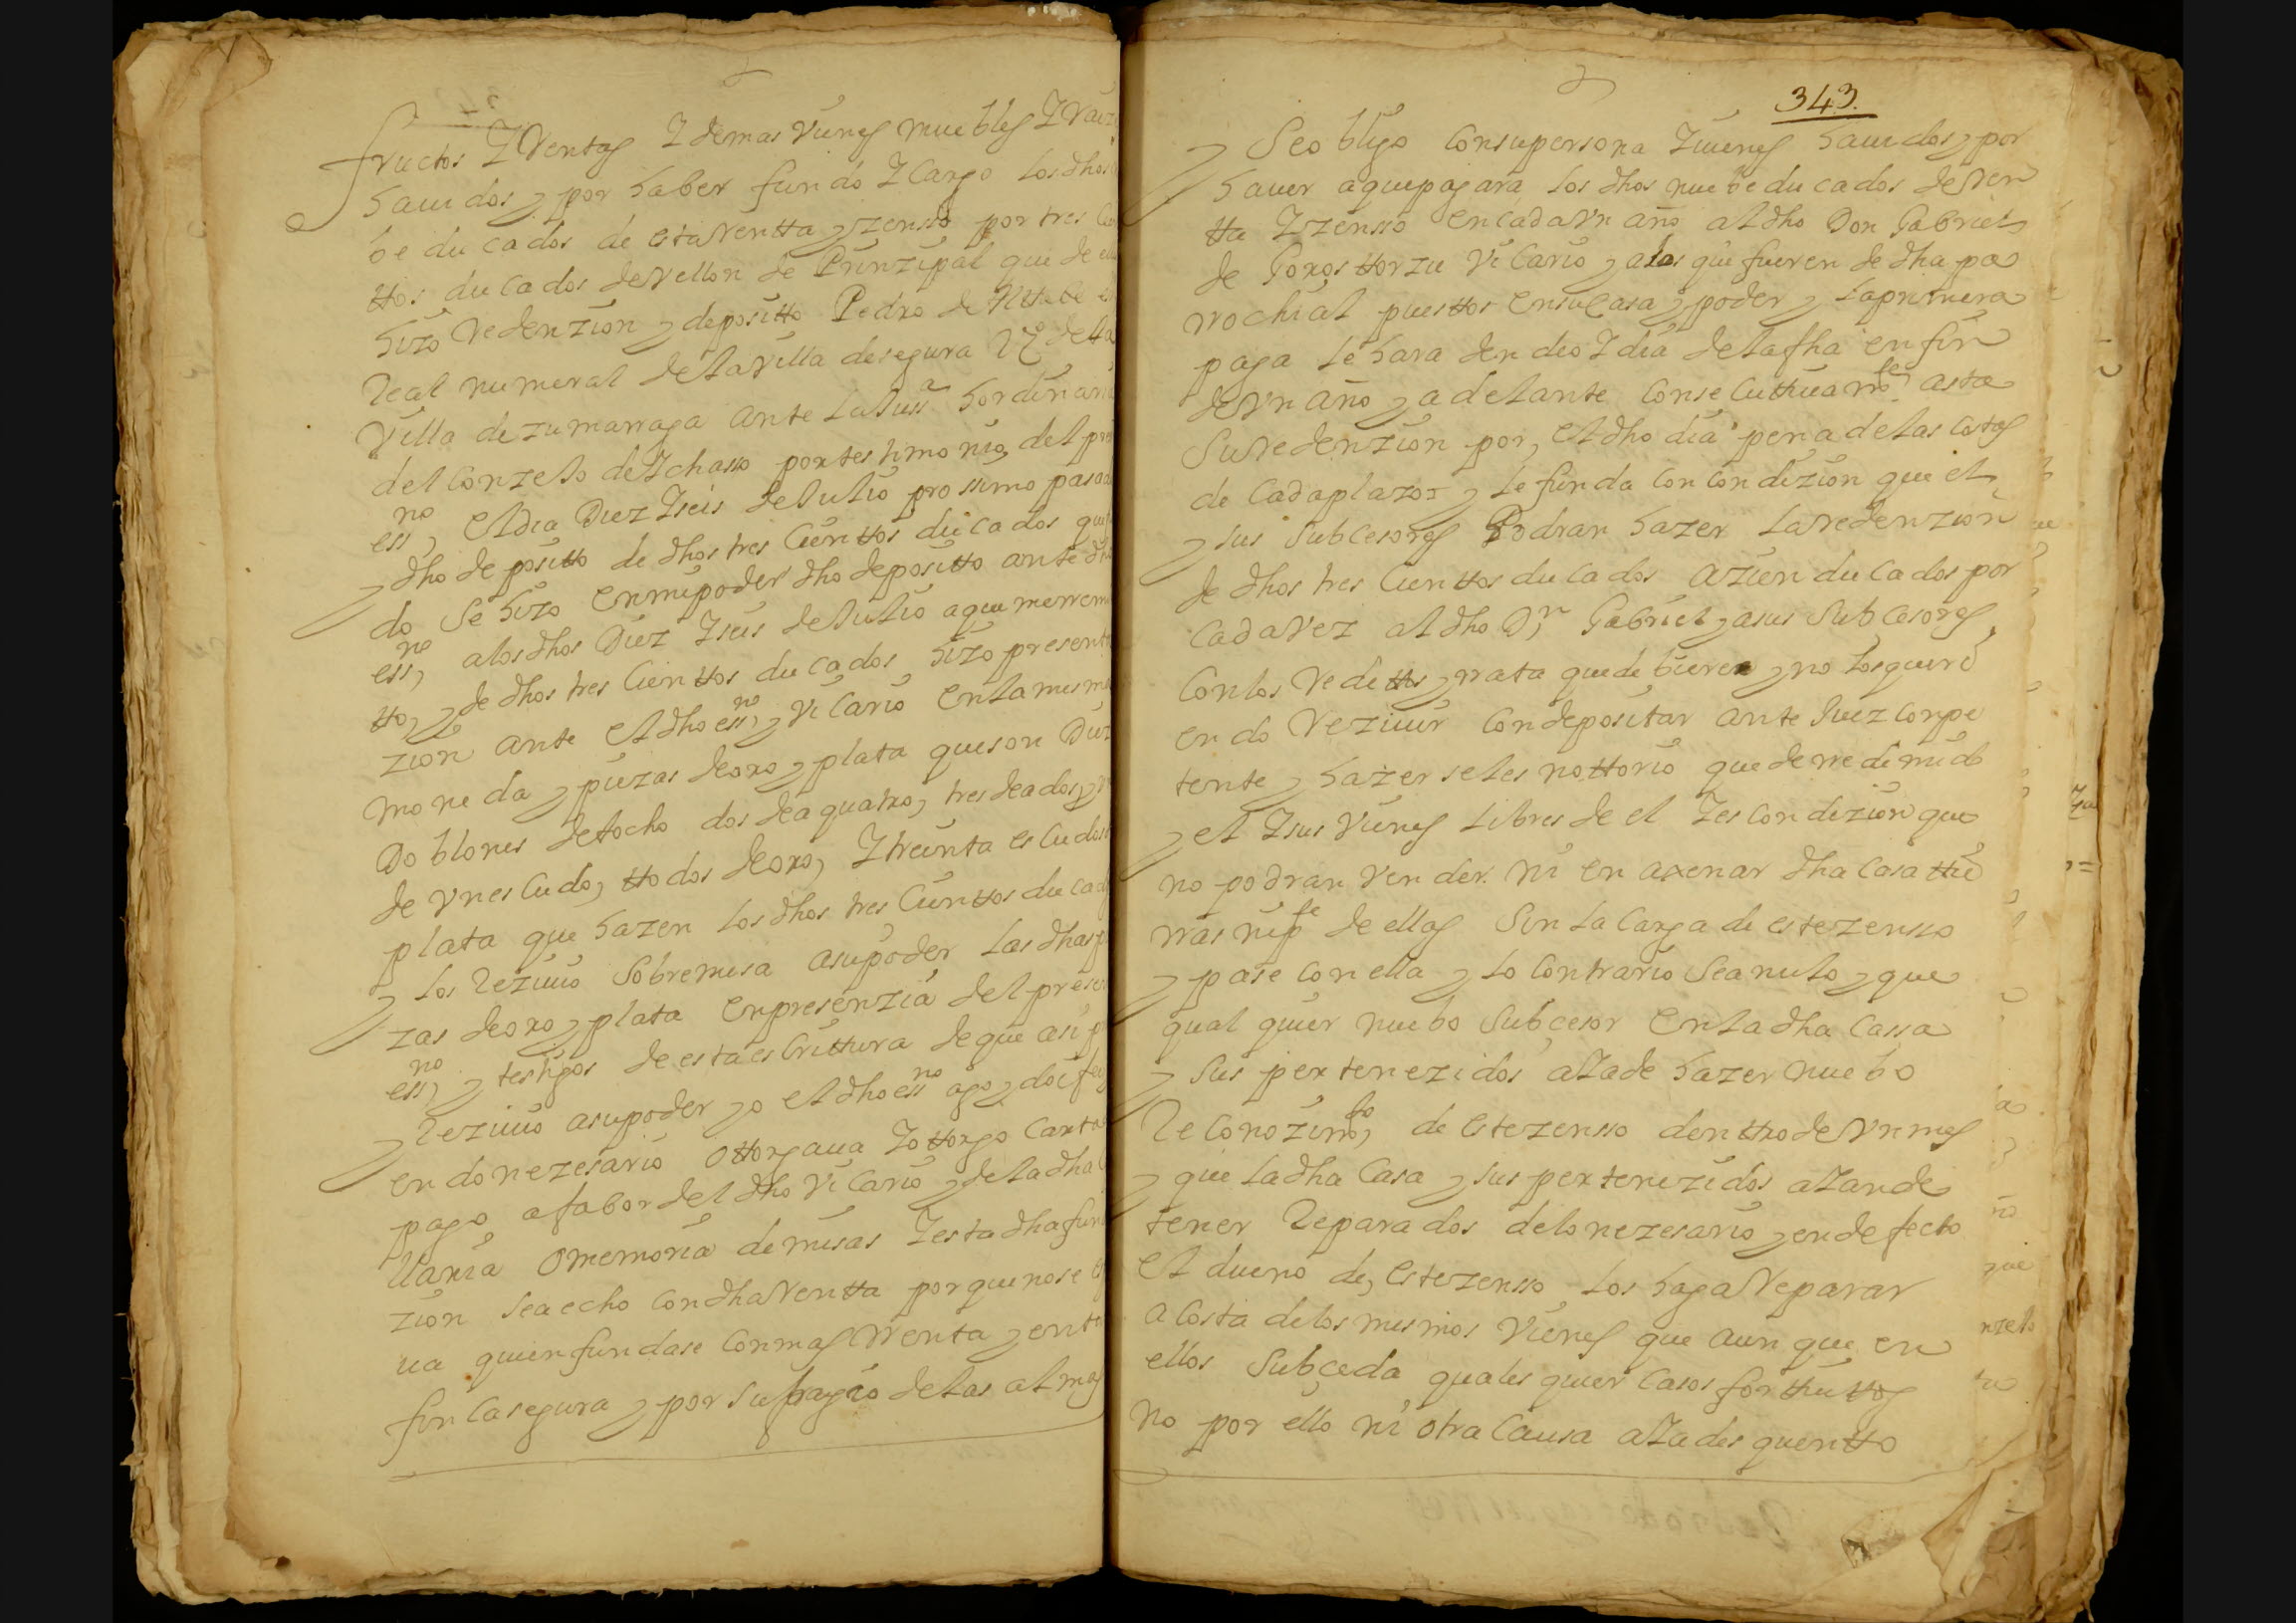 fructos Y Rentas Y demas Vienes muebles Y Raiz
hauidos, y por haber fundo Y Cargo los dhos
be ducados de esta Rentta y zensso por tres
ttos ducados de vellon de Prinzipal que de
hizo Redenzion y depositto Pedro de
Real numeral de la Villa de segura Vº de la
Villa de zumarraga ante la Jussª hordinaria
del Conzejo de Ychasso por testimonio del
essno, el dia Diez Y seis de Julio prossimo pasado
y dho depositto de dhos tres Cienttos ducados
do Se hizo en mi poder dho depositto ante dho
essno, a los dhos Diez Y seis de Julio a que me
tto, y de dhos tres Cienttos ducados hizo
zion ante el dho essno, y Vicario en la misma
moneda y piezas de oro y plata que son
Doblones de a ocho dos de a quatro, tres de a dos y
de Vn escudo, ttodos de oro, Y treinta escudos
plata que hazen los dhos tres Cienttos ducados
y los Reziuio Sobre mesa a su poder las dhas
zas de oro y plata en presenzia del
essno, y testigos de esta escrittura de que asi
y Reziuio a su poder yo el dho essno ago y doi fee
endo nezesario ottorgaua Y ottorgo Carta
pago a fabor del dho Vicario y de la dha
llania o memoria de misas Y esta dha
zion sea echo con dha Rentta porque no se
ua quien fundase con mas Rrenta y en
finca segura y por sufragio de las almas

343.
y Se obligo con su persona Y uienes hauidos, y por
hauer a que pagara los dhos nuebe ducados de Ren
tta Y zensso en cada Vn año al dho Don Gabriel
de Gorosttorzu Vicario y a los que fueren de dha pa
rrochial puesttos en su Casa y poder y la primera
paga le hara den dio Y dia de la fha en fin
de Vn año y adelante consecuttiuamte asta
su redenzion por, el dho dia pena de las costas
de Cada plazo y le funda con condizion que el
y sus Subcesores Podran hazer la redenzion
de dhos tres Cienttos ducados a zien ducados por
cada Vez al dho Dn Gabriel y a sus Subcesores
con los Reditts y rrata que debieren y no los queri
endo Reziuir con depositar ante Juez conpe
tente y hazerseles nottorio quede rredimido
y el Y sus Vienes libres de el Y es condizion que
no podran vender ni enaxenar dha casa ttie
rras ni pte de ellas Sin la Carga de este zensso
y pase con ella y lo contrario Sea nulo y que
qual quier nuebo Subcesor en la dha Cassa
y sus pertenezidos aya de hazer nuebo
Reconozimto, de este zensso denttro de Vn mes
y que la dha Casa y sus pertenezidos ayan de
tener Reparados de lo nezesario y en defecto
el dueño de, este zensso los haga Reparar
a costa de los mismos Vienes que aun que en
ellos Subceda quales quier Casos forttuittos
no por ello ni otra Causa aya desquentto